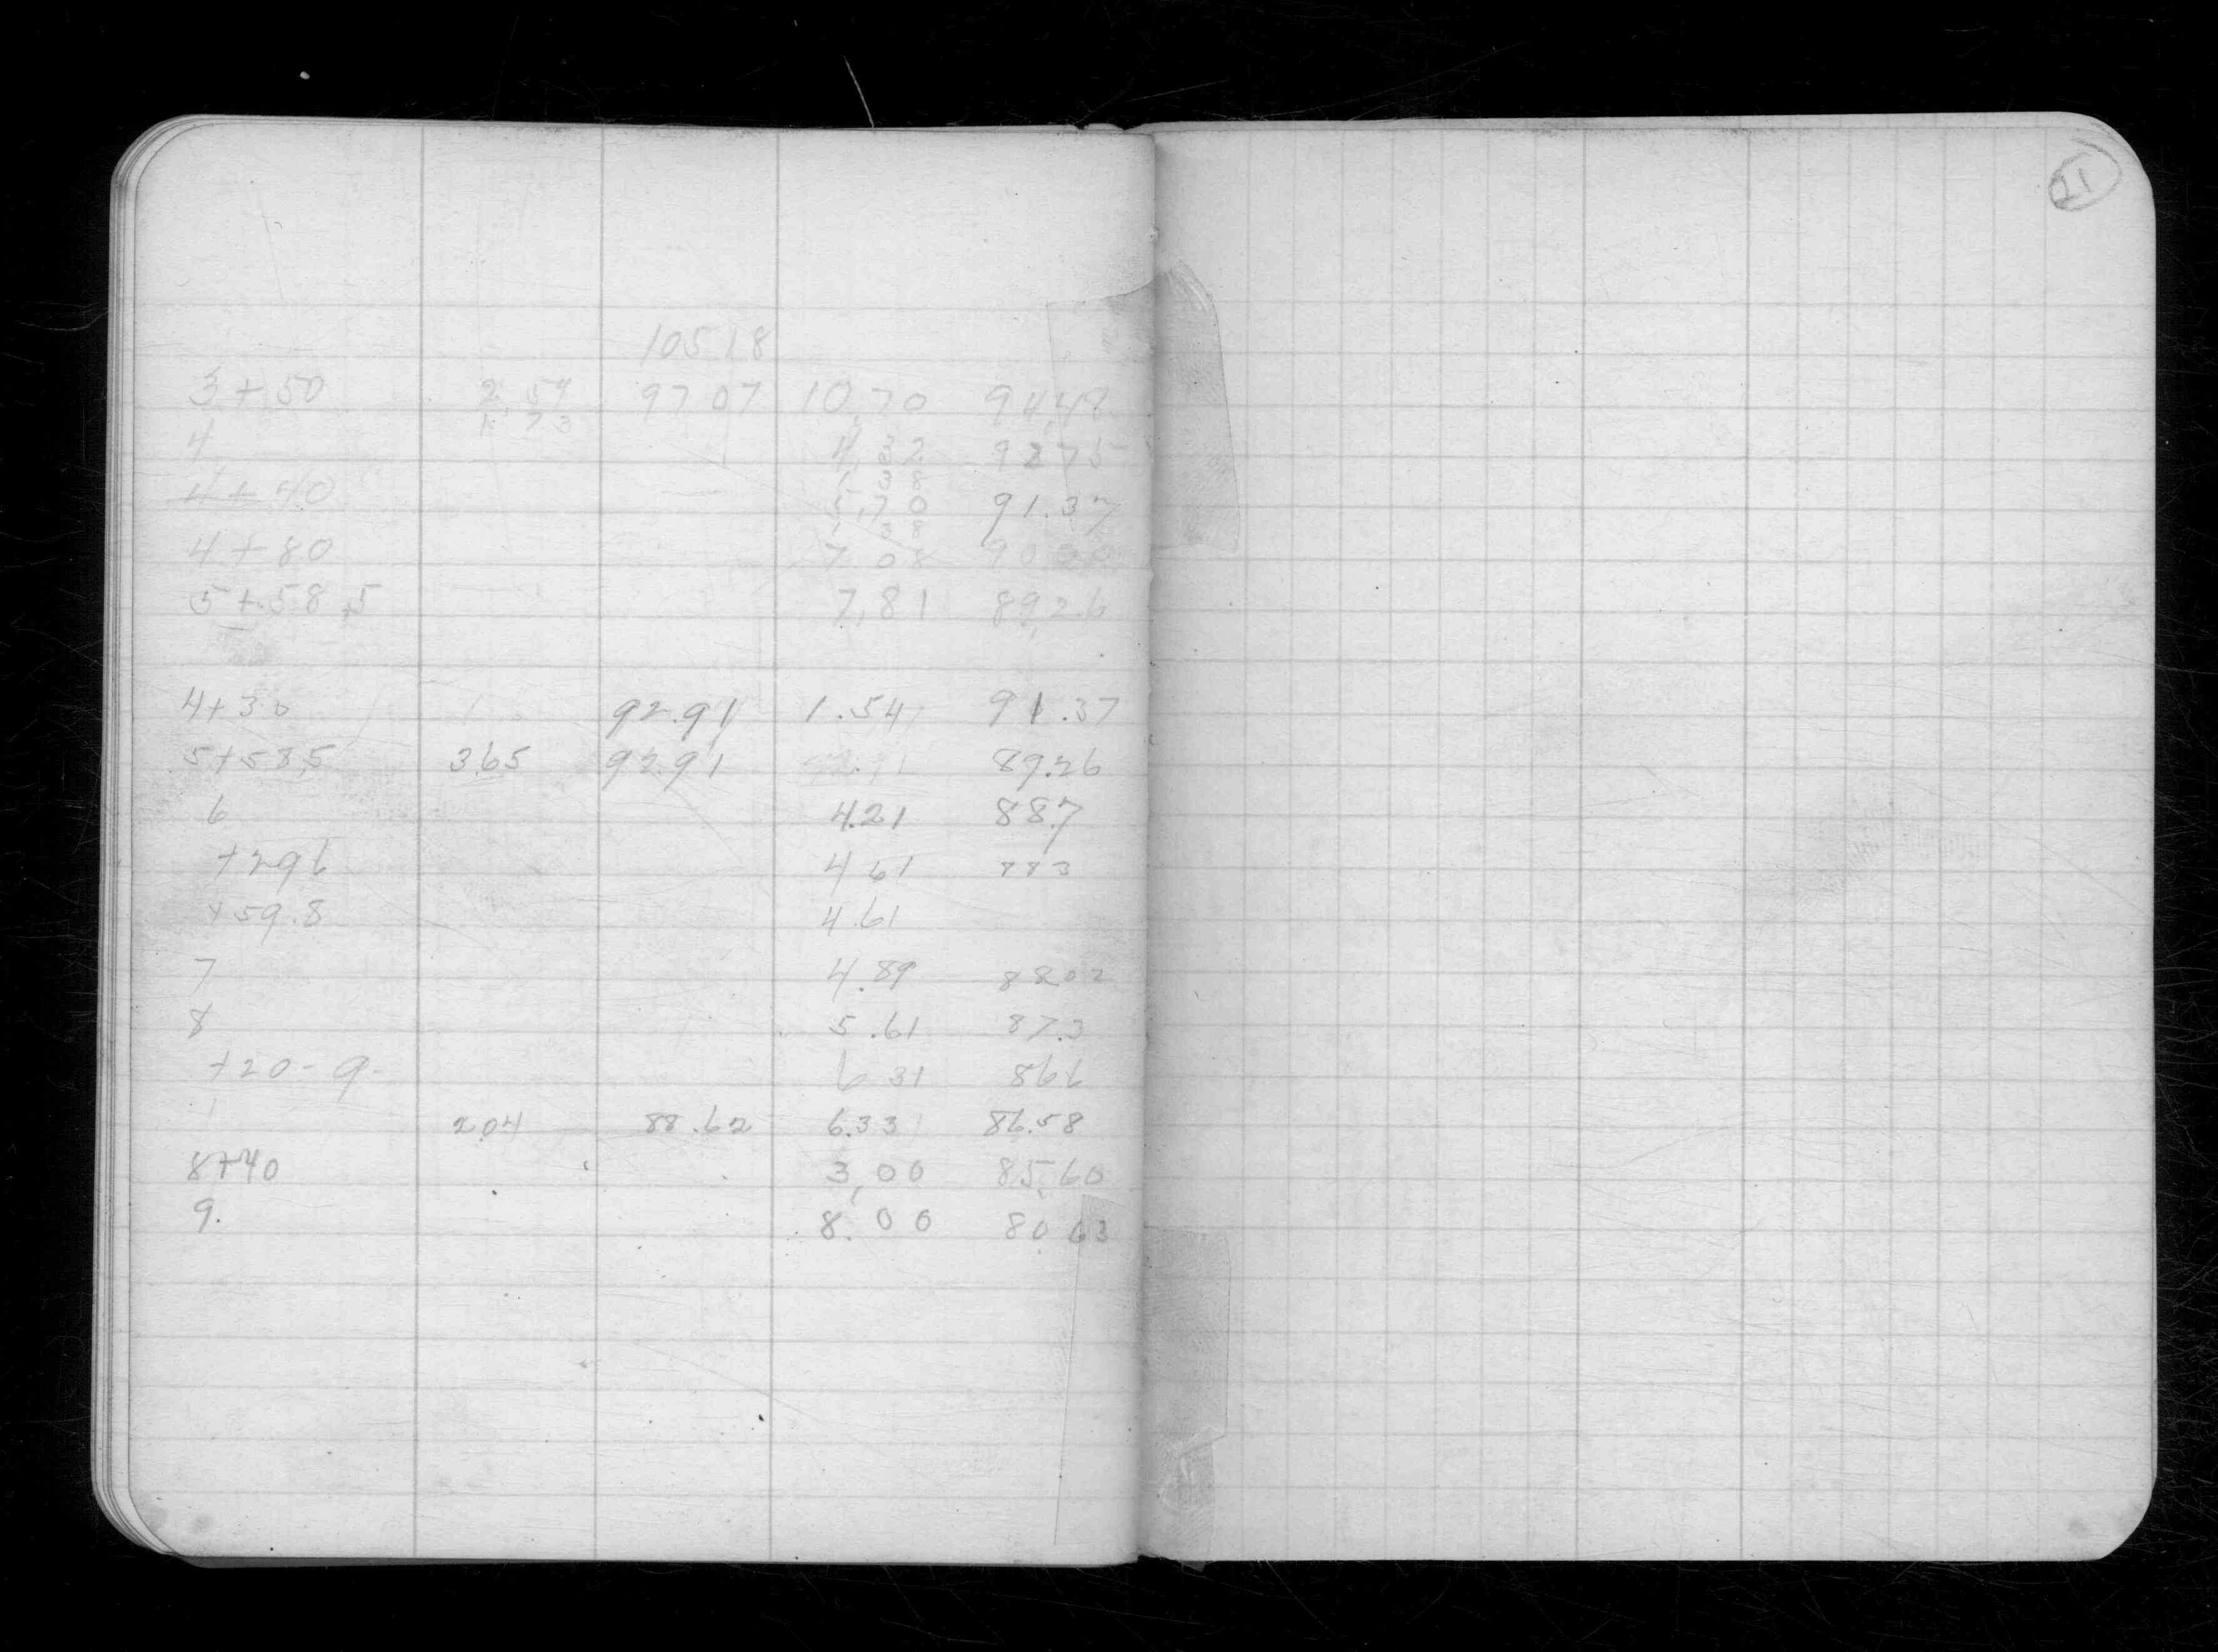 21
10518
3+50 2.59 97 07 10,70 94,48
1 73
4 4 32 92 75
1 38
4+40 5,70 91.37
1 38
4+80 7 08 90
5+58,5 7,81 89,26
4+30 92.91 1.54 91.37
5+58,5 3.65 92.91 92.91 89.26
6 4.21 88.7
+296 4 61 883
+59.8 4.61
7 4.89 8802
8 5.61 87.3
+20-9- 6 31 866
2.04 88.62 6.33 86.58
8+40 3,00 85,60
9. 8.00 80 63